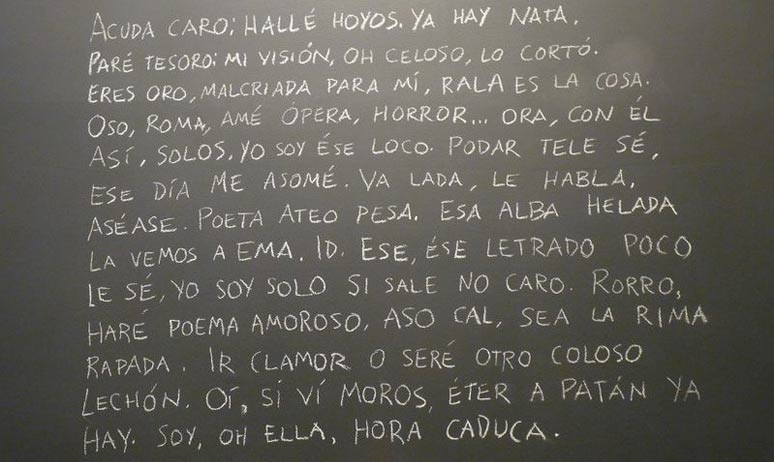 ACUDA CARO; HALLÉ HOYOS. YA HAY NATA.
PARÉ TESORO: MI VISIÓN, OH CELOSO, LO CORTÓ.
ERES ORO, MALCRIADA PARA MÍ, RALA ES LA COSA.
OSO, ROMA, AMÉ ÓPERA, HORROR... ORA, CON ÉL
ASÍ, SOLOS. YO SOY ÉSE LOCO. PODAR TELE SÉ,
ESE DÍA ME ASOMÉ. VA LADA, LE HABLA,
ASÉASE. POETA ATEO PESA. ESA ALBA HELADA
LA VEMOS A EMA. ID. ESE, ÉSE LETRADO POCO
LE SÉ, YO SOY SOLO SI SALE NO CARO. RORRO,
HARÉ POEMA AMOROSO. ASO CAL, SEA LA RIMA
RAPADA. IR CLAMOR O SERÉ OTRO COLOSO
LECHÓN. OÍ, SÍ VÍ MOROS, ÉTER A PATÁN YA
HAY. SOY, OH ELLA, HORA CADUCA.